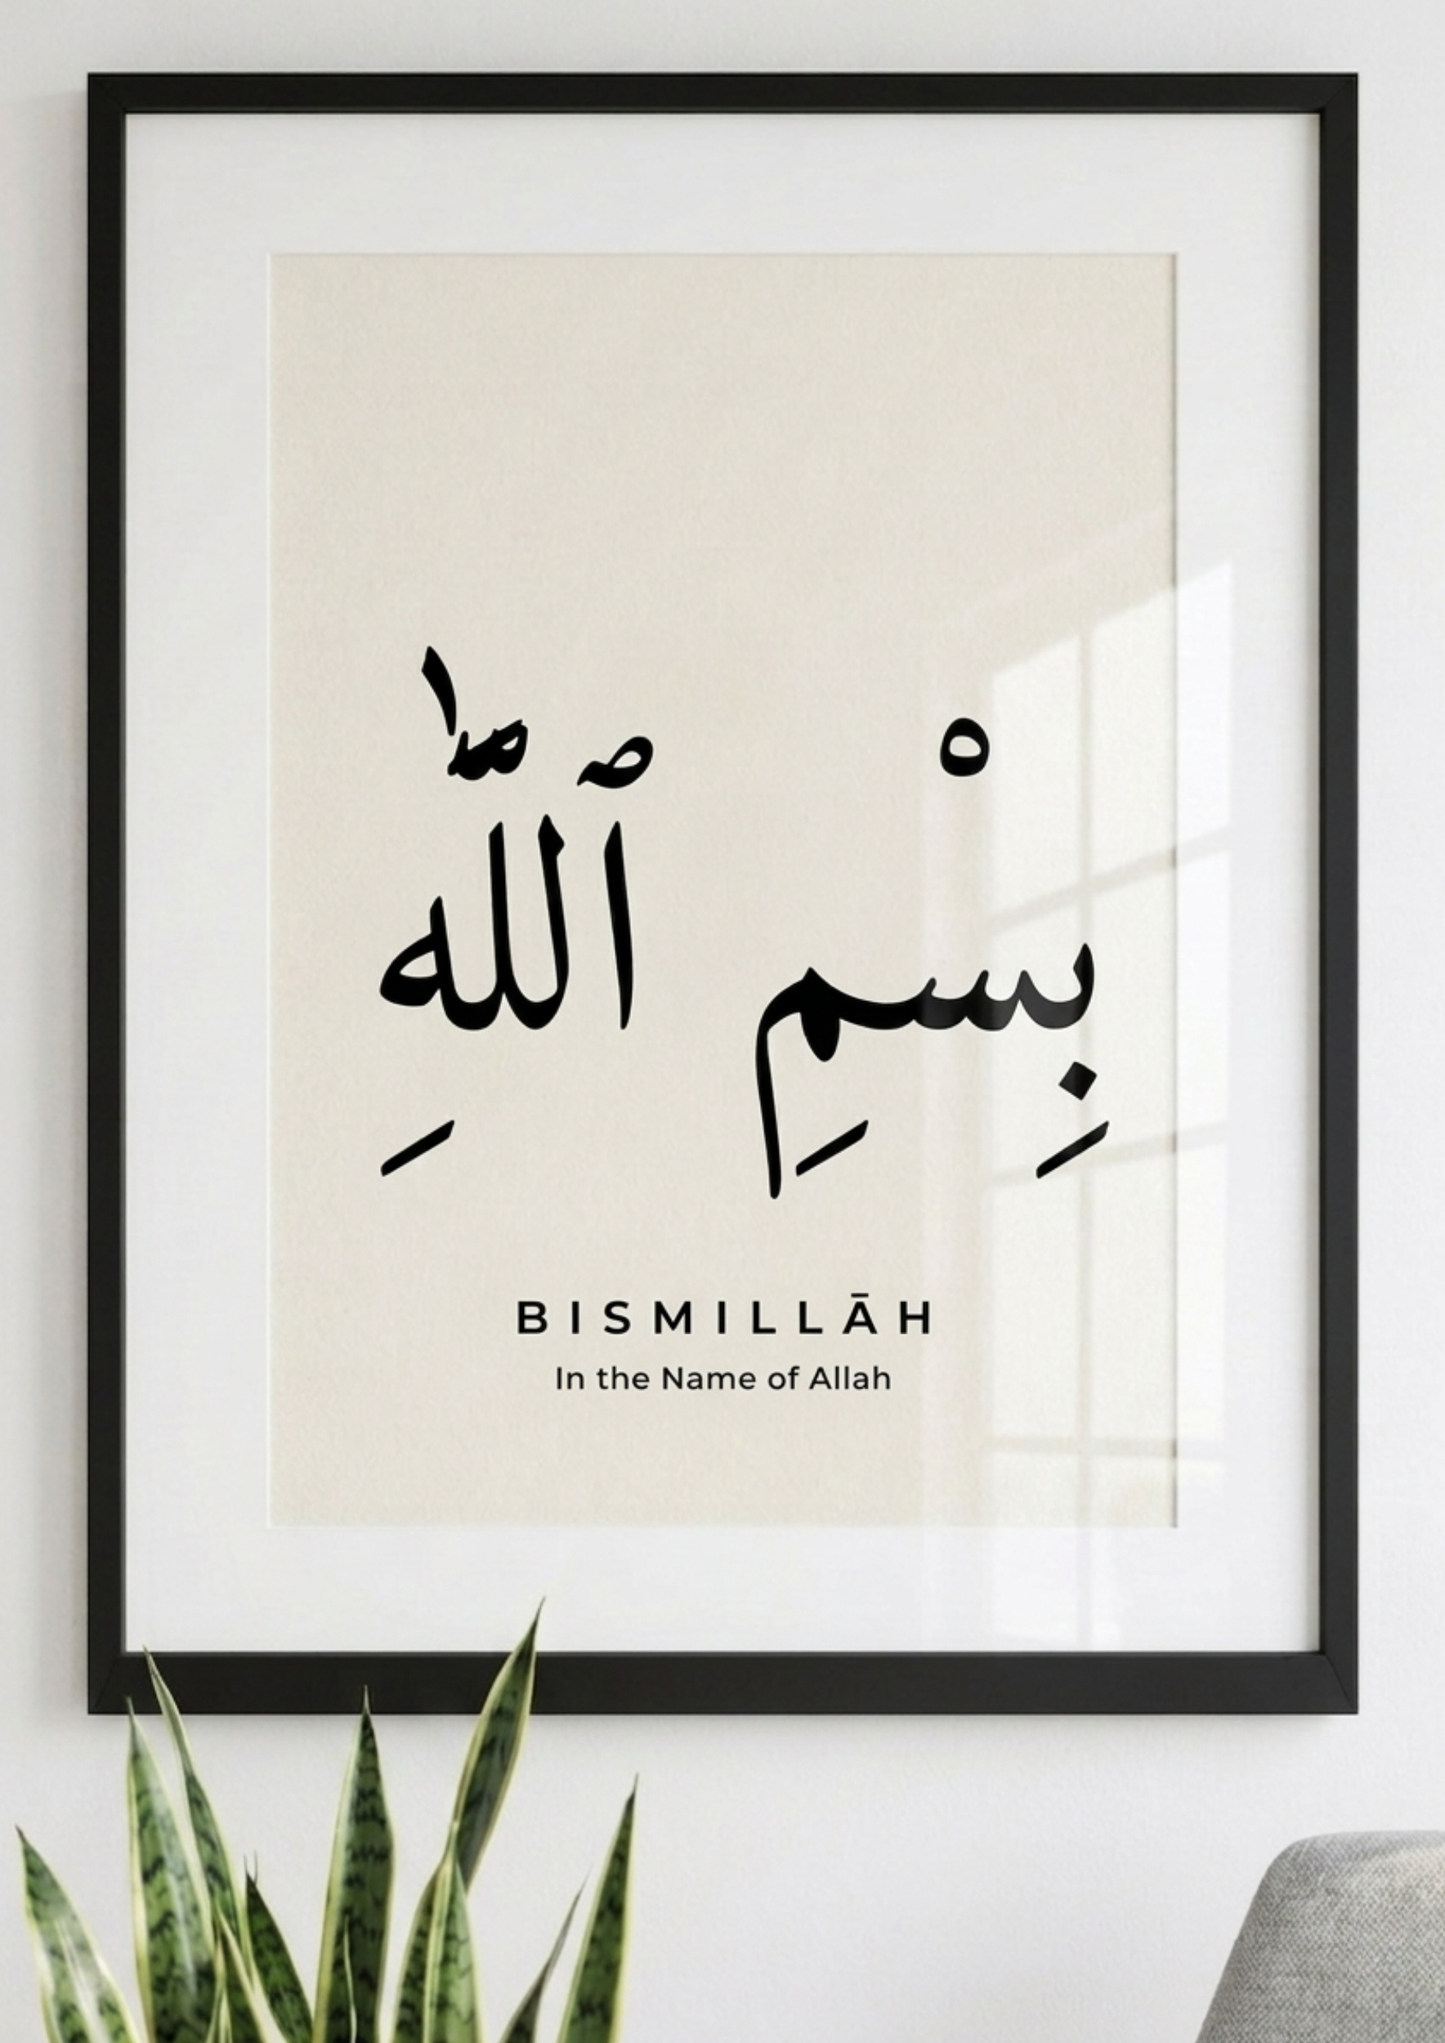 بِسْمِ ٱللَّهِ
BISMILLĀH
In the Name of Allah